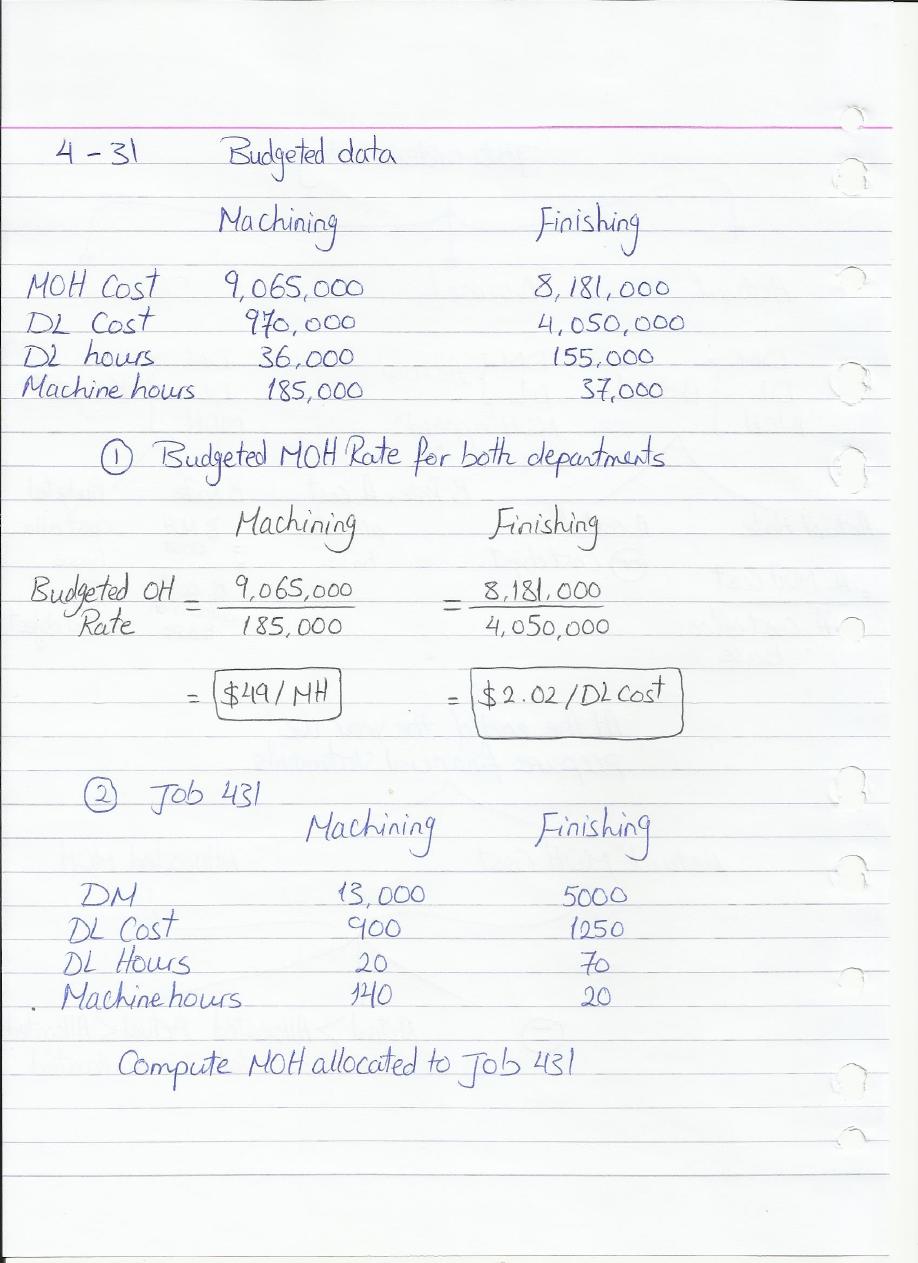 4-31 Budgeted data
Machining Finishing
MOH Cost 9,065,000 8,181,000
DL Cost 970,000 4,050,000
DL hours 36,000 155,000
Machine hours 185,000 37,000
① Budgeted MOH Rate for both departments
Machining Finishing
Budgeted OH Rate = 9,065,000 / 185,000 = 8,181,000 / 4,050,000
= $49/MH = $2.02/DL Cost
② Job 431
Machining Finishing
DM 13,000 5000
DL Cost 900 1250
DL Hours 20 70
Machine hours 140 20
Compute MOH allocated to Job 431